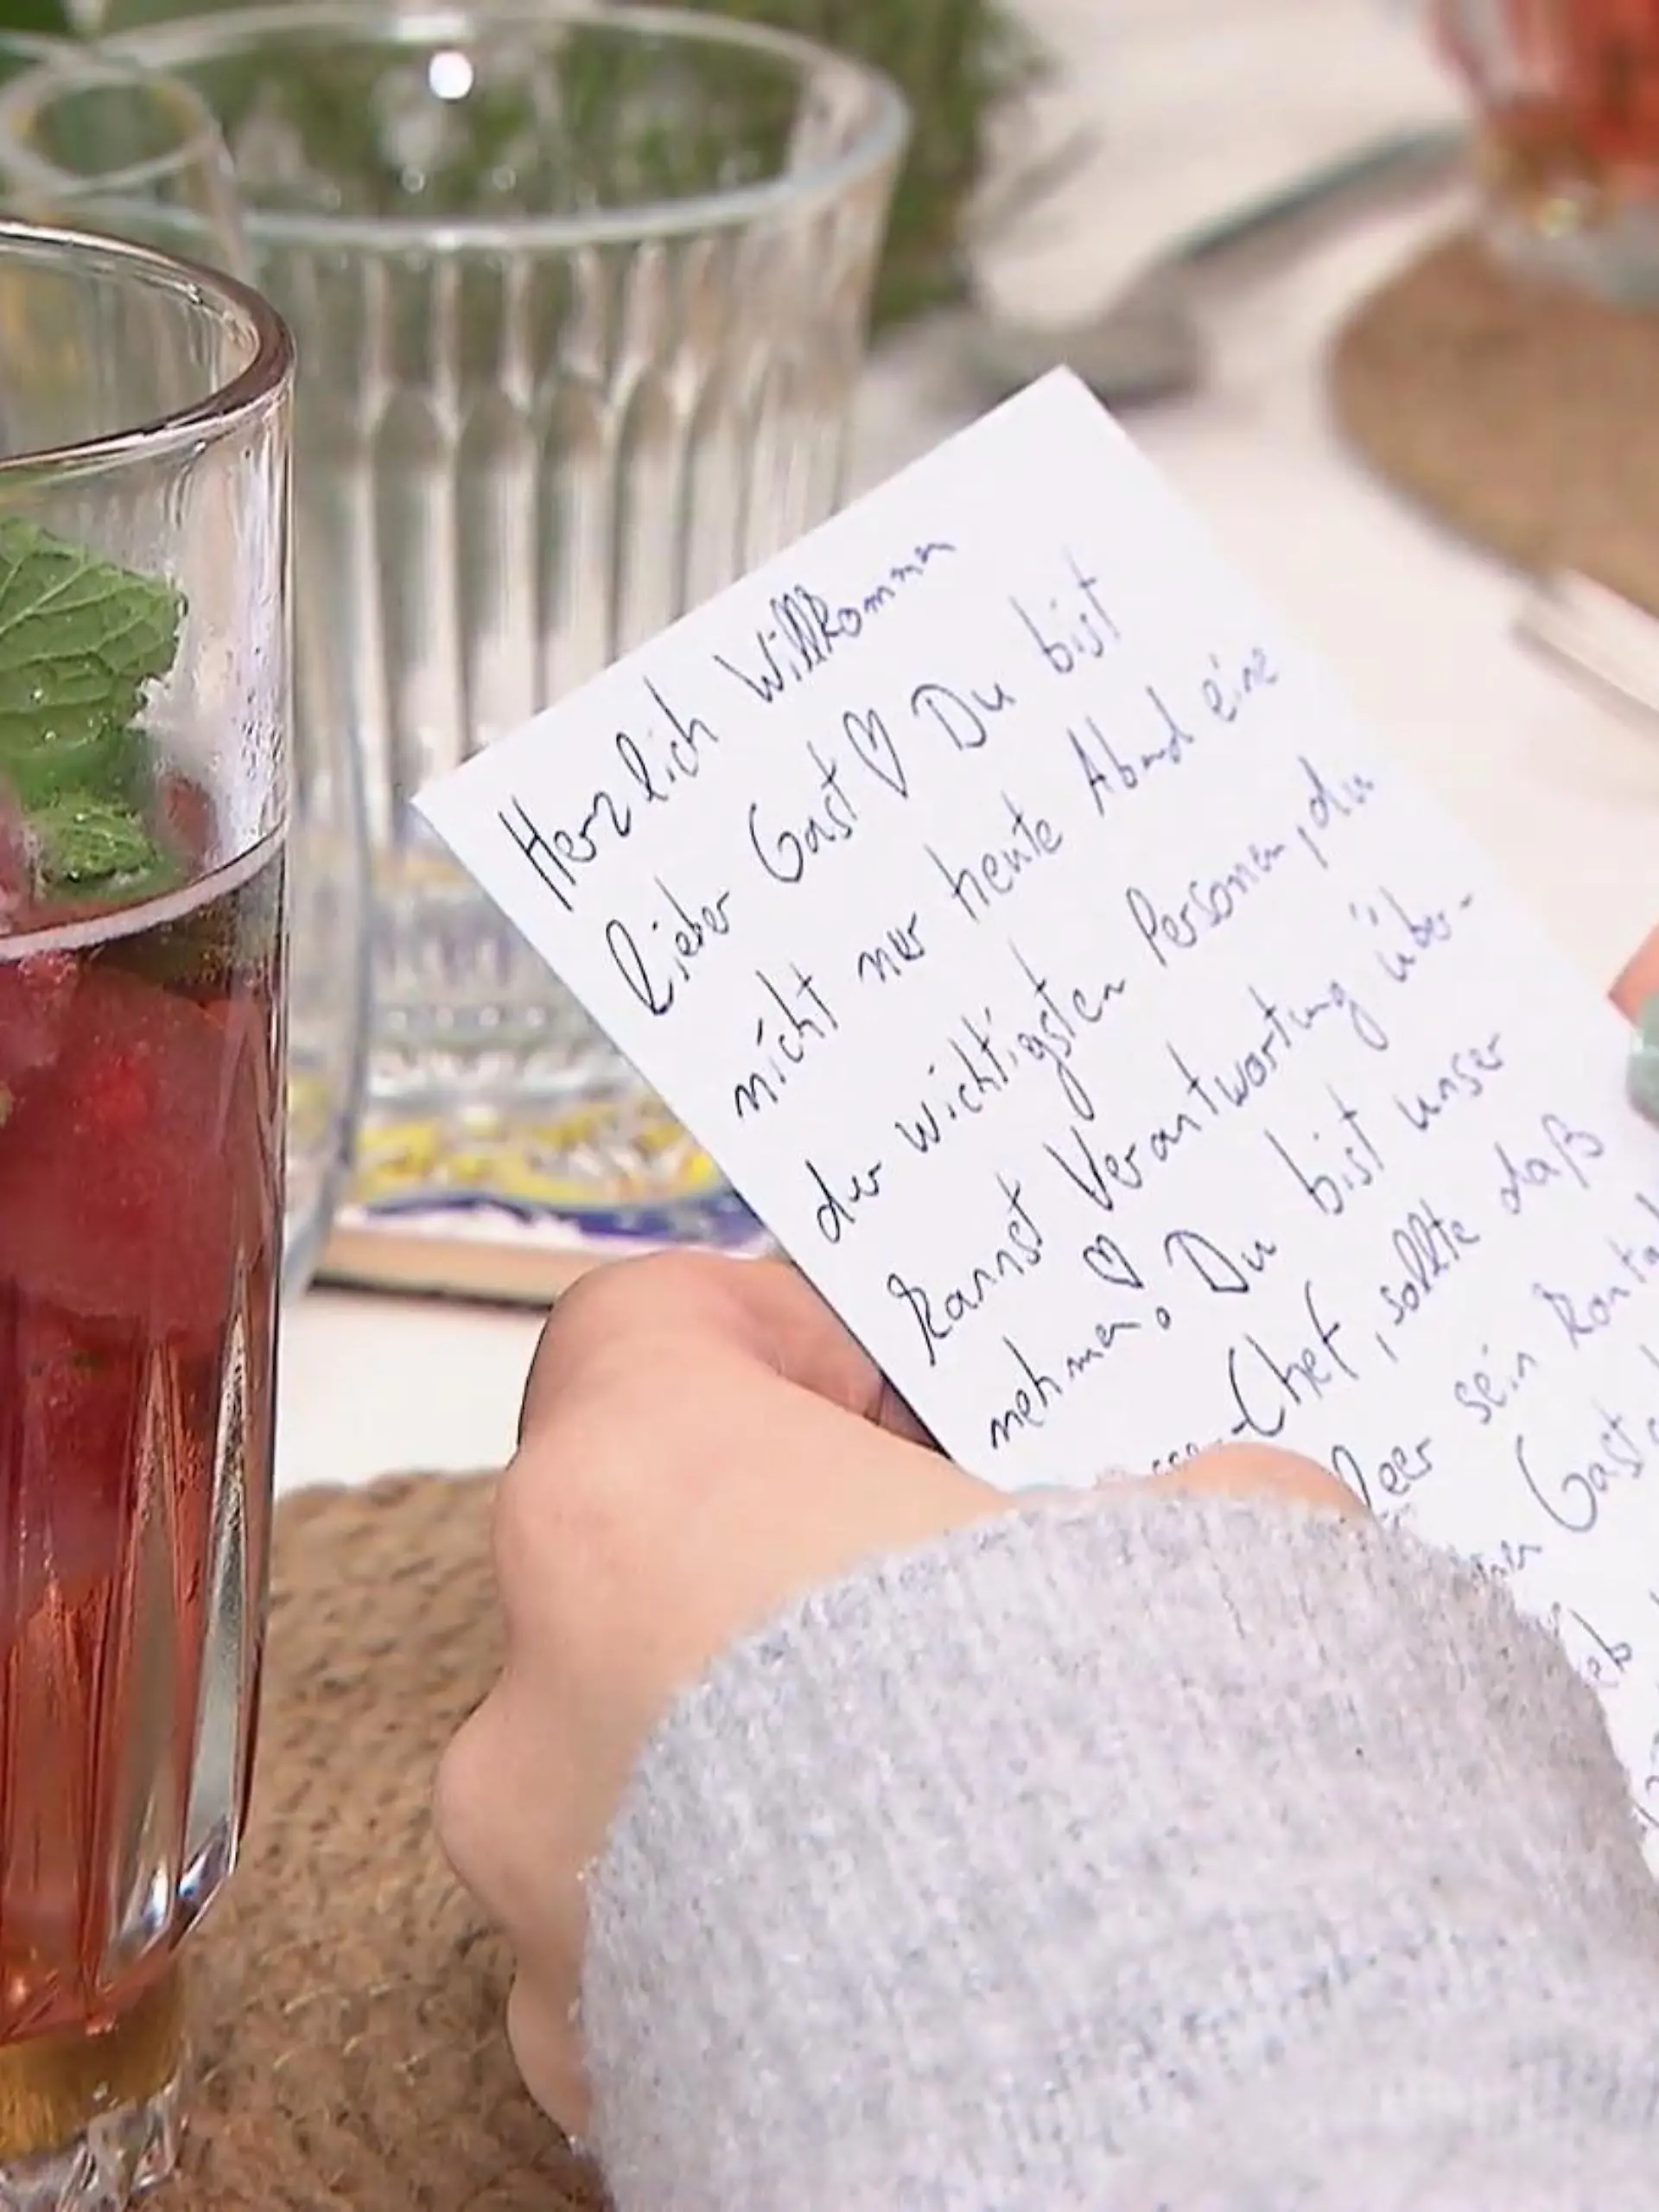 Herzlich Willkommen
lieber Gast ♡ Du bist
nicht nur heute Abend eine
der wichtigsten Personen, du
kannst Verantwortung über-
nehmen ♡. Du bist unser
-Chef, sollte daß
leer sein
Gast